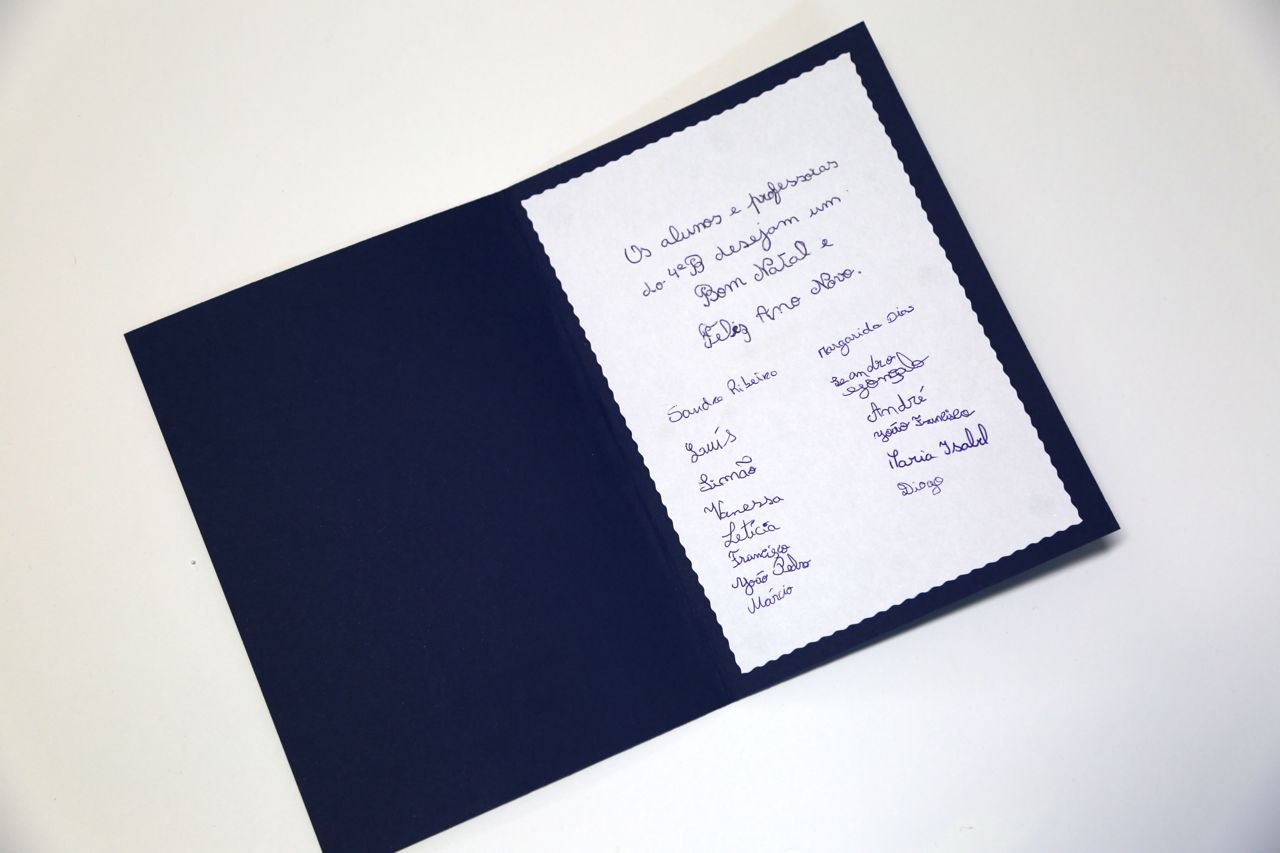 Os alunos e professoras
do 4ºB desejam um
Bom Natal e
Feliz Ano Novo.
Sandra Ribeiro
Luís
Simão
Vanessa
Letícia
Francisco
João Pedro
Márcio
Margarida Dias
Leandro
Gonçalo
André
João Francisco
Maria Isabel
Diogo